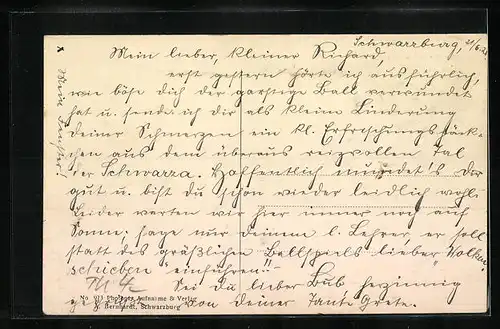 Schwarzburg, 21/6.21
Mein lieber, kleiner Richard,
erst gestern hörte ich ausführlich,
wie böse dich der garstige Ball verwundet
hat u. sende ich dir als kleine Linderung
deiner Schmerzen ein kl. Erfrischungspäck-
chen aus dem überaus reizvollen Tal
der Schwarza. Hoffentlich mundet's dir
gut u. bist du schon wieder leidlich wohl.
Leider warten wir hier immer noch auf
Sonne; sage nur deinem l. Lehrer, er soll
statt des gräßlichen Ballspiels lieber "Wolken
schieben" einführen.
Sei du lieber Bub herzinnig
von deiner Tante Grete.
No. 011 Photogr. Aufnahme & Verlag
Bernhardt, Schwarzburg